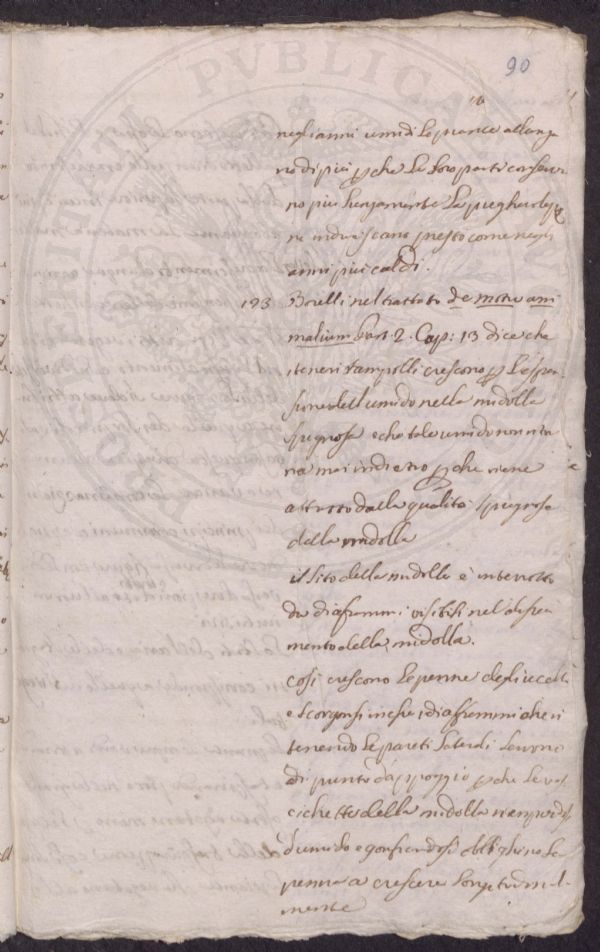 90
negli anni umidi le piante allunga
no di più perche le loro parti conserva
no più lungamente la pieghevolezza
ne induriscano presto come negli
anni più caldi.
193 Borelli nel trattato de motu ani
malium Part. 2. Cap: 13 dice che
i teneri rampolli crescono per l'espan-
sione dell'umido nella midolla
spugnosa e che tale umido non ita
na mai indietro perche viene
attratto dalla qualità spugnosa
della midolla
il sito della midolla è interrotto
da diaframmi visibili nel disecca
mento della midolla.
cosi crescono le penne degli uccelli
e scorgonsi in esse i diaframmi che ri
tenendo le pareti laterali servono
di punto d'appoggio perche le ves
cichette della midolla riempiendosi
d'umido e gonfiandosi oblighino la
penna a crescere longitudinal-
mente